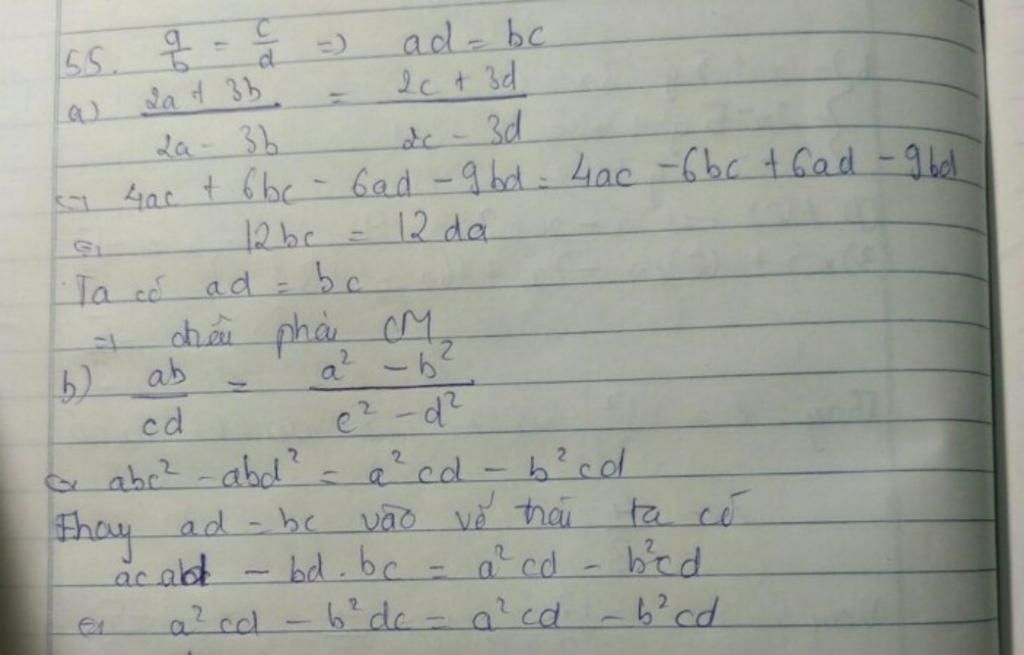 55. a/b = c/d => ad = bc
a) (2a + 3b)/(2a - 3b) = (2c + 3d)/(2c - 3d)
<=> 4ac + 6bc - 6ad - 9bd = 4ac - 6bc + 6ad - 9bd
<=> 12bc = 12da
Ta có ad = bc
=> điều phải CM
b) ab/cd = (a² - b²)/(c² - d²)
<=> abc² - abd² = a²cd - b²cd
Thay ad = bc vào vế trái ta có
ac ad - bd . bc = a²cd - b²cd
<=> a²cd - b²dc = a²cd - b²cd